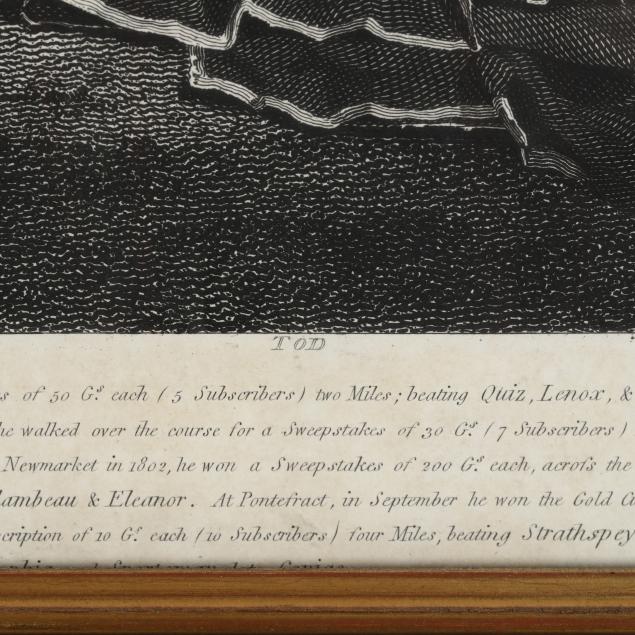 TOD
s of 50 G.s each (5 Subscribers) two Miles; beating Quiz, Lenox, &
he walked over the course for a Sweepstakes of 30 G.s (7 Subscribers)
Newmarket in 1802, he won a Sweepstakes of 200 G.s each, acroſs the
lambeau & Eleanor. At Pontefract, in September he won the Gold Cu
cription of 10 G.s each (10 Subscribers) four Miles, beating Strathspey